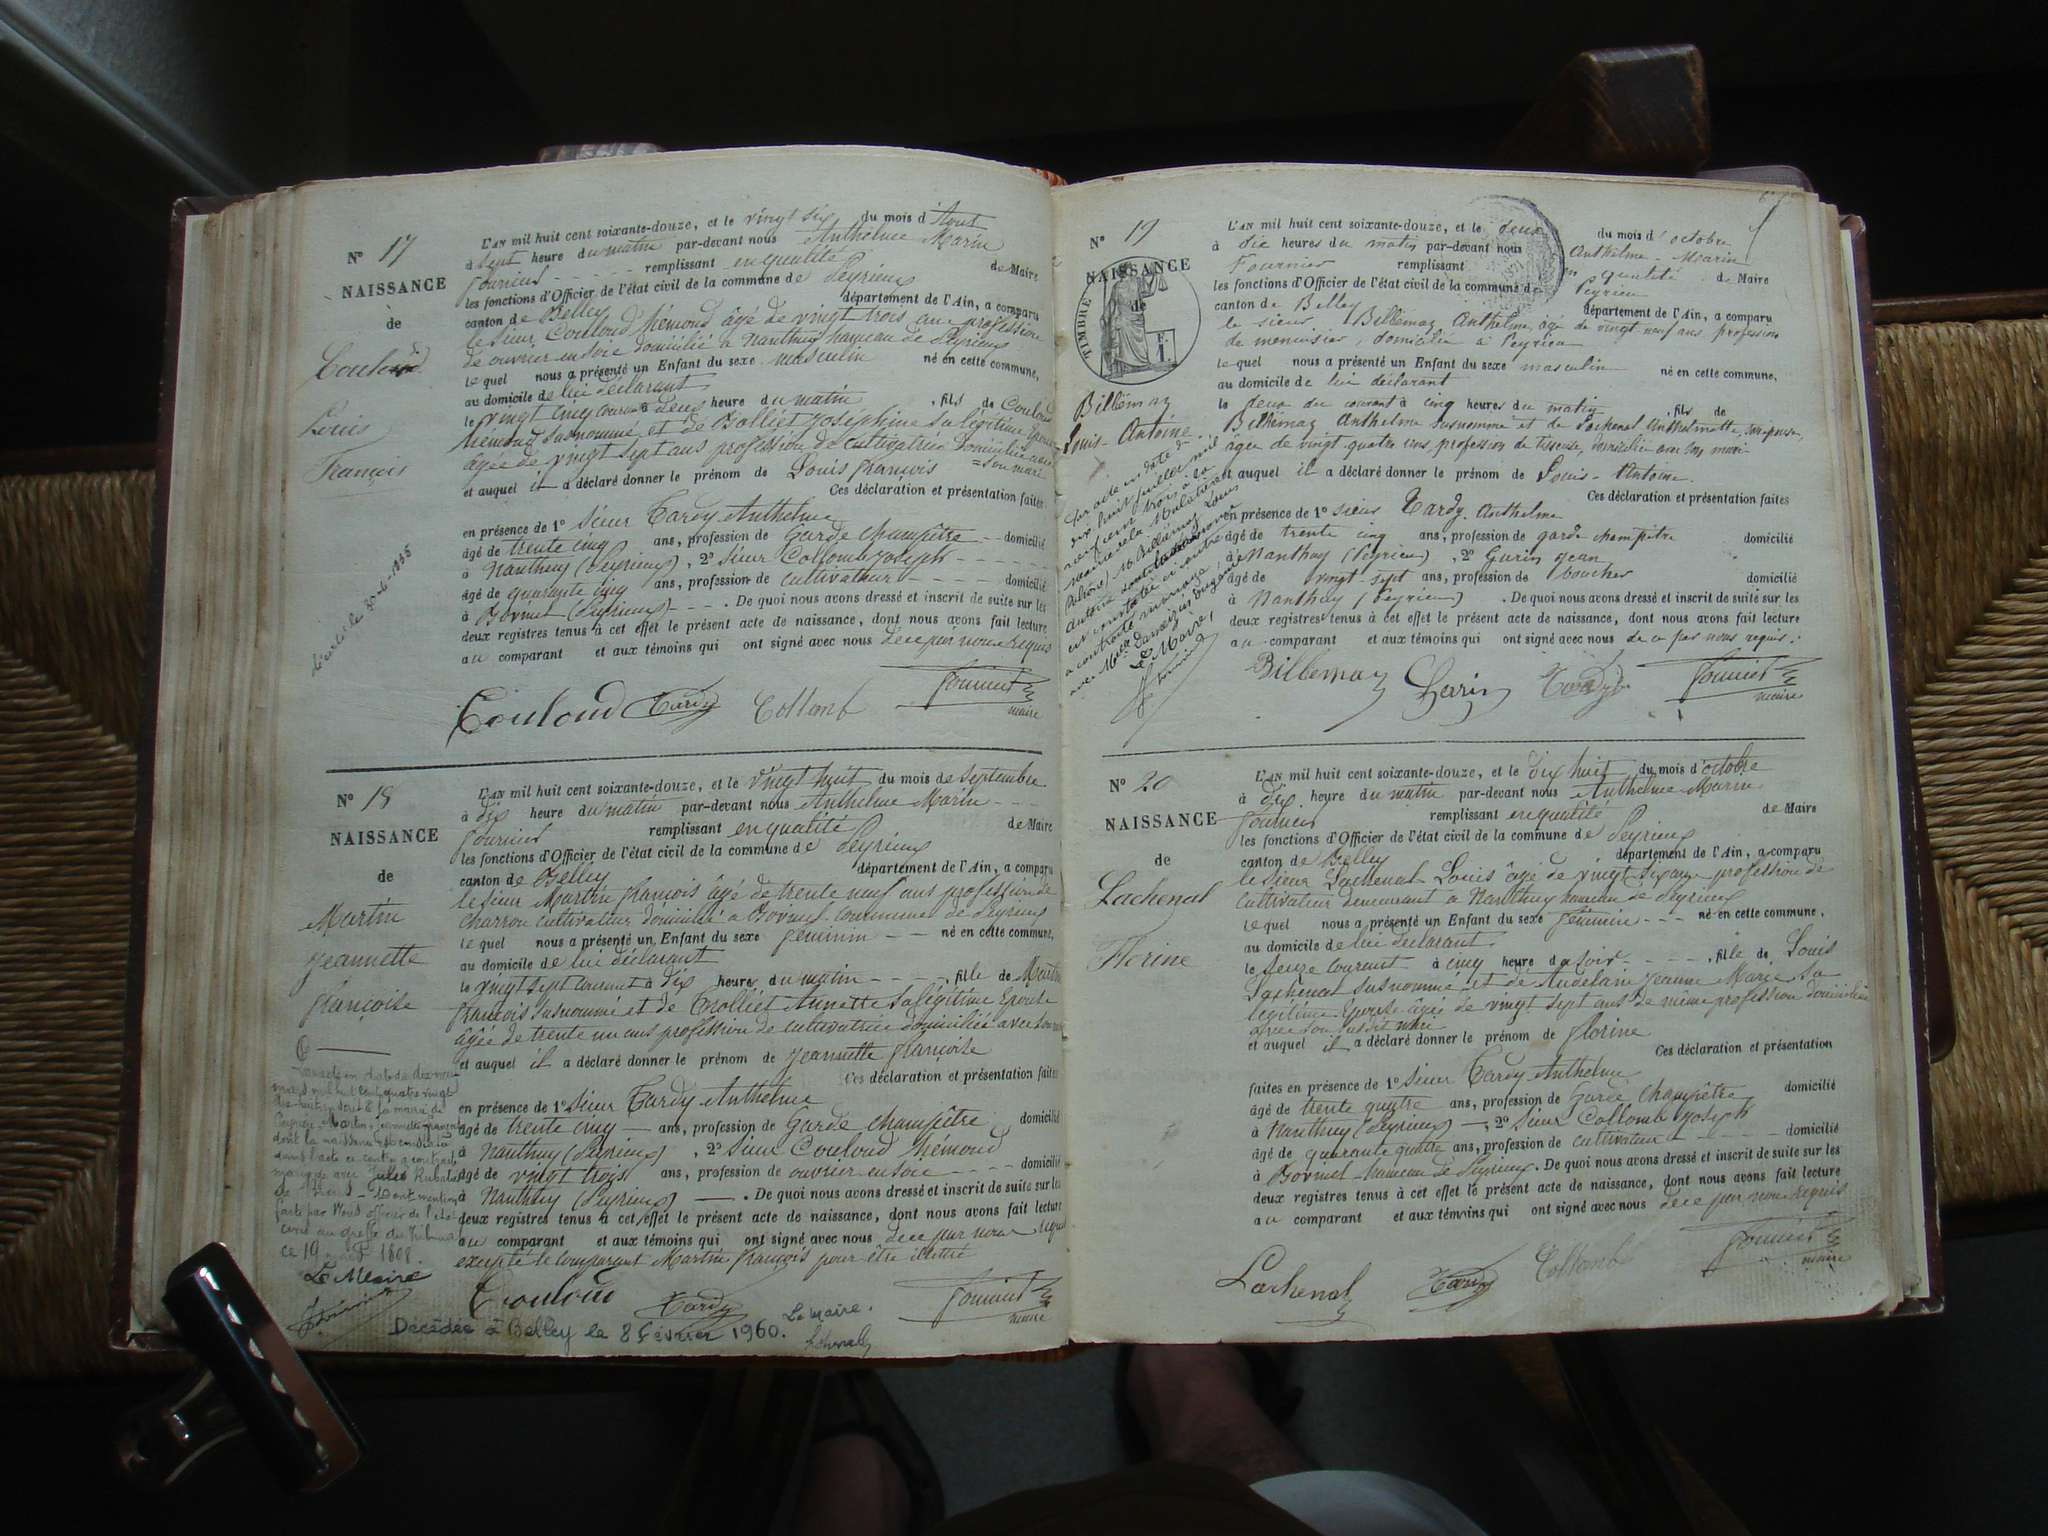 N° 17
NAISSANCE
de
Couloud
Louis
François
L'AN mil huit cent soixante-douze, et le vingt six du mois d'Aout
à sept heure du matin par-devant nous Anthelme Marin
Fournier remplissant en qualité de Maire
les fonctions d'Officier de l'état civil de la commune de Peyrieu
canton de Belley département de l'Ain, a comparu
le sieur Couloud Némond âgé de vingt trois ans profession
de ouvrier en soie domicilié a Nanthuy hameau de Peyrieu
le quel nous a présenté un Enfant du sexe masculin né en cette commune,
au domicile de lui déclarant
le vingt cinq courant à deux heure du matin, fils de Couloud
Némond susnommé et de Balliet Joséphine sa légitime Epouse
âgée de vingt sept ans profession de cultivatrice domiciliée avec
= son mari
et auquel il a déclaré donner le prénom de Louis François
Ces déclaration et présentation faites
en présence de 1° Sieur Tardy Anthelme
âgé de trente cinq ans, profession de Garde champêtre domicilié
à Nanthuy (Peyrieu), 2° Sieur Collomb Joseph
âgé de quarante cinq ans, profession de cultivateur domicilié
à Bovinel (Peyrieu). De quoi nous avons dressé et inscrit de suite sur les
deux registres tenus à cet effet le présent acte de naissance, dont nous avons fait lecture
au comparant et aux témoins qui ont signé avec nous de ce par nous requis
Couloud Tardy Collomb Fournier
maire
N° 18
NAISSANCE
de
Martin
Jeannette
Françoise
L'AN mil huit cent soixante-douze, et le vingt huit du mois de septembre
à dix heure du matin par-devant nous Anthelme Marin
Fournier remplissant en qualité de Maire
les fonctions d'Officier de l'état civil de la commune de Peyrieu
canton de Belley département de l'Ain, a comparu
le sieur Martin François âgé de trente neuf ans profession de
charron cultivateur domicilié a Bovinel commune de Peyrieu
le quel nous a présenté un Enfant du sexe féminin né en cette commune,
au domicile de lui déclarant
le vingt sept courant à dix heure du matin, fille de Martin
François susnommé et de Trolliet Annette sa légitime Epouse
âgée de trente un ans profession de cultivatrice domiciliée avec son mari
et auquel il a déclaré donner le prénom de Jeannette Françoise
Ces déclaration et présentation faites
en présence de 1° Sieur Tardy Anthelme
âgé de trente cinq ans, profession de Garde champêtre domicilié
à Nanthuy (Peyrieu), 2° Sieur Couloud Némond
âgé de vingt trois ans, profession de ouvrier en soie domicilié
à Nanthuy (Peyrieu). De quoi nous avons dressé et inscrit de suite sur les
deux registres tenus à cet effet le présent acte de naissance, dont nous avons fait lecture
au comparant et aux témoins qui ont signé avec nous de ce par nous requis
excepté le comparant Martin François pour être illettré
Par acte en date du dix neuf
mars mil huit cent quatre vingt
dix-huit inscrit à la mairie de
Peyrieu Martin Jeannette françoise
dont la naissance est constatée
dans l'acte ci contre a contracté
mariage avec Jules Rubat
Dont mention
faite par Nous officier de l'état
civil au greffe du Tribunal
ce 19 1898
Le Maire
Couloud Tardy Fournier
maire
Décédée à Belley le 8 février 1960.
Le maire.
N° 19
NAISSANCE
de
TIMBRE
Billémaz
Louis-Antoine
L'AN mil huit cent soixante-douze, et le deux du mois d'octobre
à dix heures du matin par-devant nous Anthelme-Marin
Fournier remplissant en qualité de Maire
les fonctions d'Officier de l'état civil de la commune de Peyrieu
canton de Belley département de l'Ain, a comparu
le sieur Billémaz Anthelme, âgé de vingt neuf ans profession
de menuisier, domicilié à Peyrieu
le quel nous a présenté un Enfant du sexe masculin né en cette commune,
au domicile de lui déclarant
le deux du courant à cinq heures du matin, fils de
Billémaz Anthelme susnommé et de Lachenal Anthelmette, son épouse,
âgée de vingt quatre ans profession de tisseuse, domiciliée avec son mari
et auquel il a déclaré donner le prénom de Louis-Antoine.
Ces déclaration et présentation faites
en présence de 1° sieur Tardy Anthelme
âgé de trente cinq ans, profession de garde champêtre domicilié
à Nanthuy (Peyrieu), 2° Gurin Jean
âgé de vingt-sept ans, profession de boucher domicilié
à Nanthuy (Peyrieu). De quoi nous avons dressé et inscrit de suite sur les
deux registres tenus à cet effet le présent acte de naissance, dont nous avons fait lecture
au comparant et aux témoins qui ont signé avec nous de ce par nous requis.
Par acte en date du
dix huit juillet mil
neuf cent trois à la
mairie de la Mulatière
(Rhône) M. Billémaz Louis
Antoine dont la naissance
est constatée ci contre
a contracté mariage
avec Mlle
Le Maire,
Billemaz Gurin Tardy Fournier
maire
N° 20
NAISSANCE
de
Lachenal
Florine
L'AN mil huit cent soixante-douze, et le dix huit du mois d'octobre
à dix heure du matin par-devant nous Anthelme Marin
Fournier remplissant en qualité de Maire
les fonctions d'Officier de l'état civil de la commune de Peyrieu
canton de Belley département de l'Ain, a comparu
le sieur Lachenal Louis âgé de vingt six ans profession de
cultivateur demeurant a Nanthuy hameau de Peyrieu
le quel nous a présenté un Enfant du sexe féminin né en cette commune,
au domicile de lui déclarant
le seize courant à cinq heure du soir, fille de Louis
Lachenal susnommé et de Andelan Jeanne Marie sa
légitime Epouse âgée de vingt sept ans de même profession domiciliée
avec son susdit mari
et auquel il a déclaré donner le prénom de Florine
Ces déclaration et présentation
faites en présence de 1° Sieur Tardy Anthelme
âgé de trente quatre ans, profession de Garde champêtre domicilié
à Nanthuy (Peyrieu), 2° Sieur Collomb Joseph
âgé de quarante quatre ans, profession de cultivateur domicilié
à Bovinel hameau de Peyrieu. De quoi nous avons dressé et inscrit de suite sur les
deux registres tenus à cet effet le présent acte de naissance, dont nous avons fait lecture
au comparant et aux témoins qui ont signé avec nous de ce par nous requis
Lachenal Tardy Collomb Fournier
maire